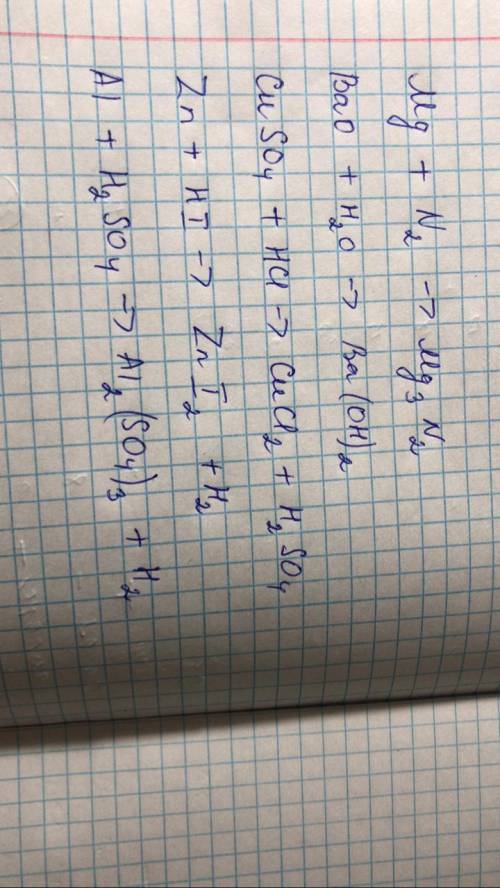 Mg + N₂ -> Mg₃N₂
BaO + H₂O -> Ba(OH)₂
CuSO₄ + HCl -> CuCl₂ + H₂SO₄
Zn + HI -> ZnI₂ + H₂
Al + H₂SO₄ -> Al₂(SO₄)₃ + H₂